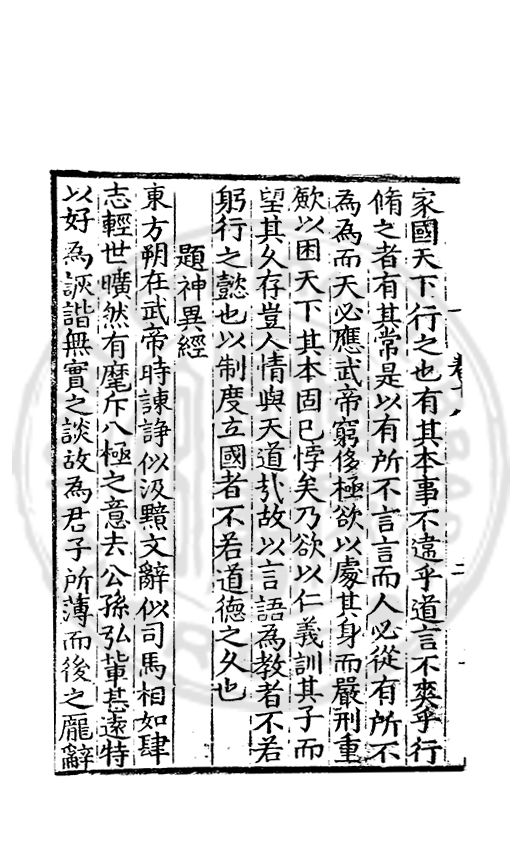 家國天下行之也有其本事不違乎道言不爽乎行
脩之者有其常是以有所不言言而人必從有所不
為為而天必應武帝窮侈極欲以處其身而嚴刑重
歛以困天下其本固已悖矣乃欲以仁義訓其子而
望其久存豈人情與天道㢤故以言語為教者不若
躬行之懿也以制度立國者不若道德之久也
題神異經
東方朔在武帝時諫諍似汲黯文辭似司馬相如肆
志輕世曠然有麾斥八極之意去公孫弘軰甚遠特
以好為詼諧無實之談故為君子所薄而後之厖辭